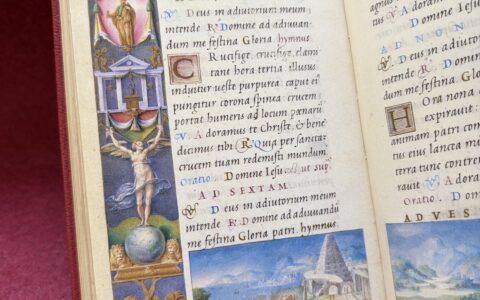 V. Deus in adiutorium meum
intende R. Domine ad adiuvan
dum me festina Gloria. hymnus
Crucifige, crucifige, clami
tant hora tertia: illusus
induitur veste purpurea: caput ei'
pungitur corona spinea: crucem
portat humeris ad locum pœnarũ
V. Adoramus te Christe, & bene
dicimus tibi R. Quia per sanctaz
crucem tuam redemisti mundum
Oratio. D
AD SEXTAM.
V. Deus in adiutorium meum
intende R. Domine ad adiuvandũ
me festina Gloria patri. hymnus.
V. Ador
Domine Iesu
AD NON
V. Deus in ad
intende. R. D
dũ me festina Glor
Hora nona
expirauit:
animam patri com
tus eius lancea mi
terra tunc contre
V. Ador
Oratio. Domine
AD VES